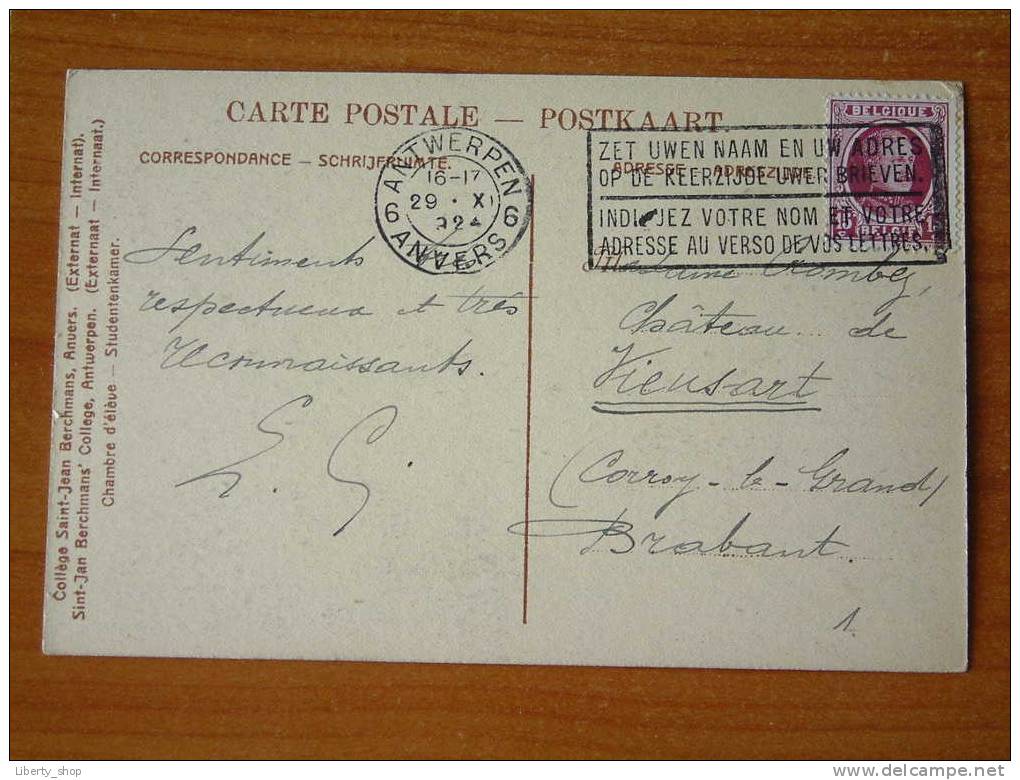 CARTE POSTALE — POSTKAART.
CORRESPONDANCE — SCHRIJFRUIMTE.
ADRESSE ADRESZIJDE
ANTWERPEN
16-17
29 · XI
6 6
ANVERS
ZET UWEN NAAM EN UW ADRES
OP DE KEERZIJDE UWER BRIEVEN.
INDIQUEZ VOTRE NOM ET VOTRE
ADRESSE AU VERSO DE VOS LETTRES.
BELGIQUE
BELGIË
Sentiments
respectueux et très
reconnaissants.
Madame
Château de
Vieusart
(Corroy-le-Grand)
Brabant
1
Collège Saint-Jean Berchmans, Anvers. (Externat — Internat).
Sint-Jan Berchmans' College, Antwerpen. (Externaat — Internaat.)
Chambre d'élève — Studentenkamer.
Liberty_shop
delcampe.net